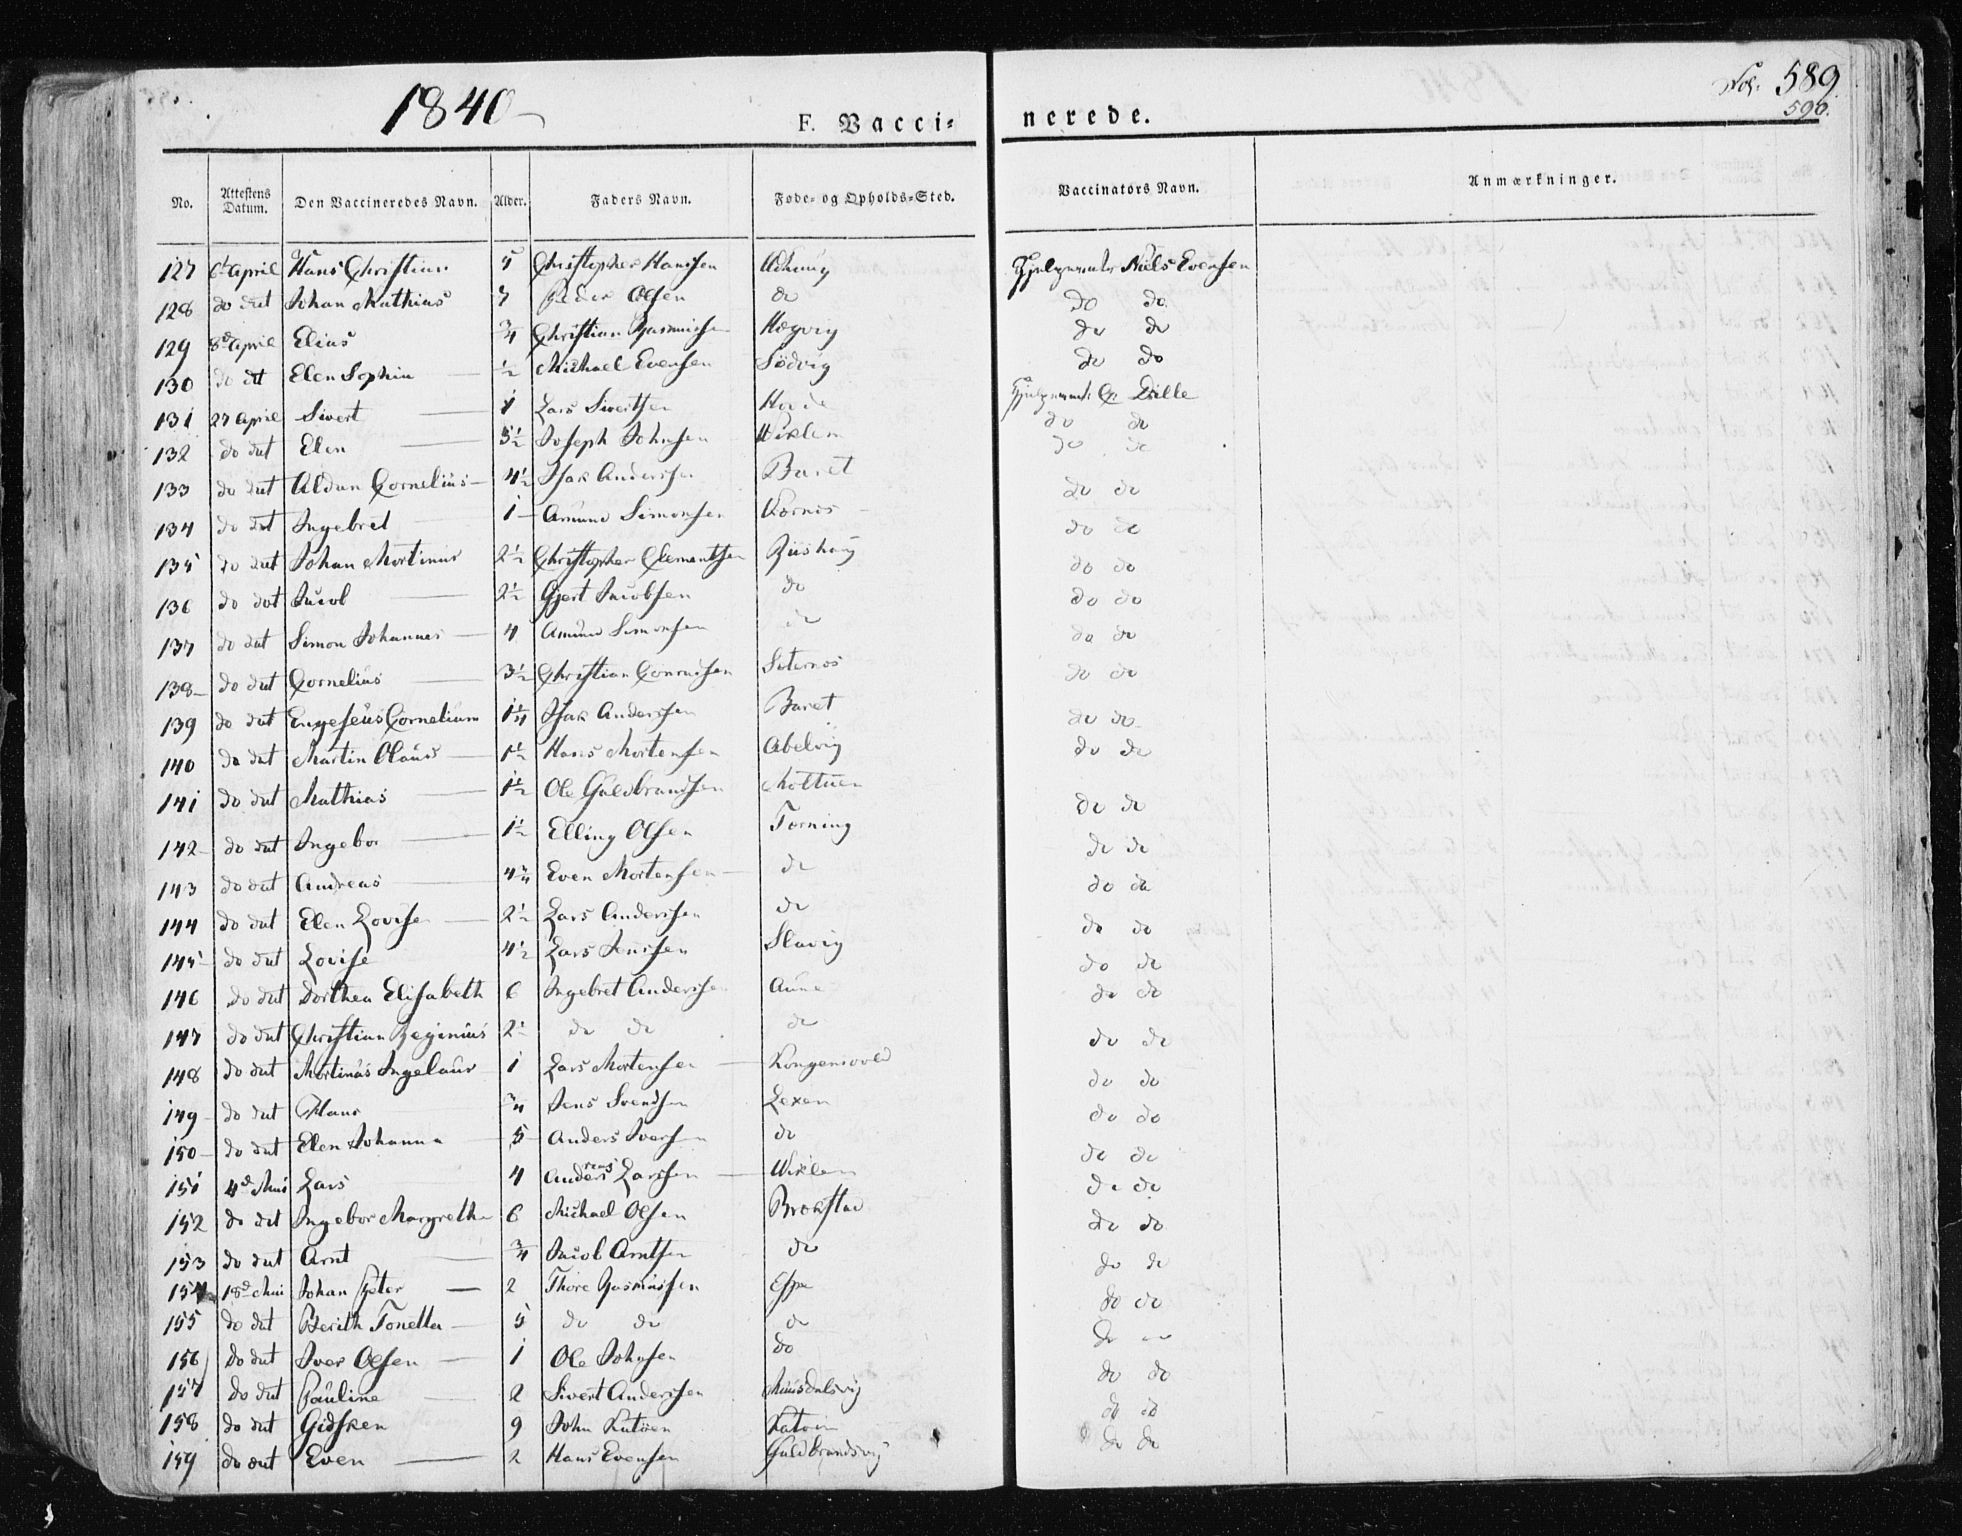 1840
Fol. 589
590.
F. Vacci= nerede.
No. Attestens Datum. Den Vaccineredes Navn. Alder. Faders Navn. Føde= og Opholds=Sted. Vaccinators Navn. Anmærkninger.
127 6t April Hans Christian 5 Christopher Hansen Niels Evensen
128 do dat Johan Mathias Peder Olsen do do do
129 8d April Elias 3/4 Christian Rasmussen do do
130 do dt Elen Sophia 1/2 Michael Evensen Södvig do do
131 27 April Sivert 1 Lars Sivertsen Dille
132 do dat Elen 3 1/2 Joseph Johnsen Wiklem do do
133 do dat Aldan Cornelius 4 1/2 Isak Anderssen Buret do do
134 do dat Ingebret 1 Amund Simonsen do do
135 do dat Johan Mortinus 2 1/2 Christopher Clementsen Riishaug do do
136 do dat Jacob 2 1/2 Gjert Jacobsen do do do
137 do dat Simon Johannes 4 Amund Simonsen do do do
138 do dat Cornelius 3 1/2 Christian Conradsen Seternes do do
139 do dat 1 1/4 Isak Anderssen Buret do do
140 do dat Martin Olaus 1 1/2 Hans Mortensen Abelvig do do
141 do dat Mathias 1 1/2 Ole Guldbrandsen do do
142 do dat Ingebor 1 1/2 Elling Olsen Torning do do
143 do dat Andreas 4 3/4 Even Mortensen do do do
144 do dat Elen Lovise 2 1/2 Lars Anderssen do do do
145 do dat Lovise 4 1/2 Lars Jenssen Slavig do do
146 do dat Dorthea Elisabeth 6 Ingebret Anderssen Aune do do
147 do dat Christian Reginius 2 1/2 do do do do do
148 do dat Mortinus Ingelaur 1 Lars Mortensen Kongensvold do do
149 do dat Hans 3/4 Jens Svendsen Lexen do do
150 do dat Elen Johanna 5 Anders Iversen do do do
151 4d Mai Lars 4 Larssen Wiklem do do
152 do dat Ingebor Margretha 6 Michael Olsen Brokstad do do
153 do dat Arnt 3/4 Jacob Arntsen do do do
154 18d Mai Johan Peter 2 Thore Rasmussen Espe do do
155 do dat Berith Tonetta 5 do do do do do
156 do dat Iver Olsen 1 Ole Johnsen do do do
157 do dat Pauline 2 Sivert Anderssen do do
158 do dat Gidsken 9 John Katöen Katöen do do
159 do dat Even 2 Hans Evensen Guldbrandsvig do do